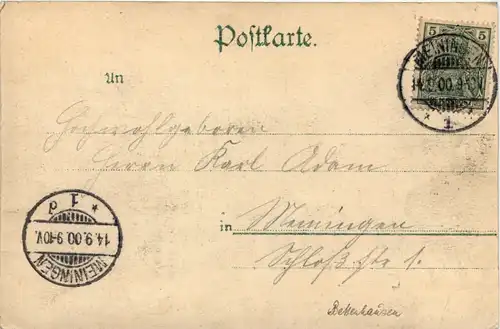 Postkarte.
5 5
MEININGEN
14.9.00.9-10V.
* 1 *
An
Hochwohlgeboren
Herrn Karl Adam
in Meiningen
Schloßstr 1.
* 1 d
14.9.00.9-10V.
MEININGEN
Bettenhausen